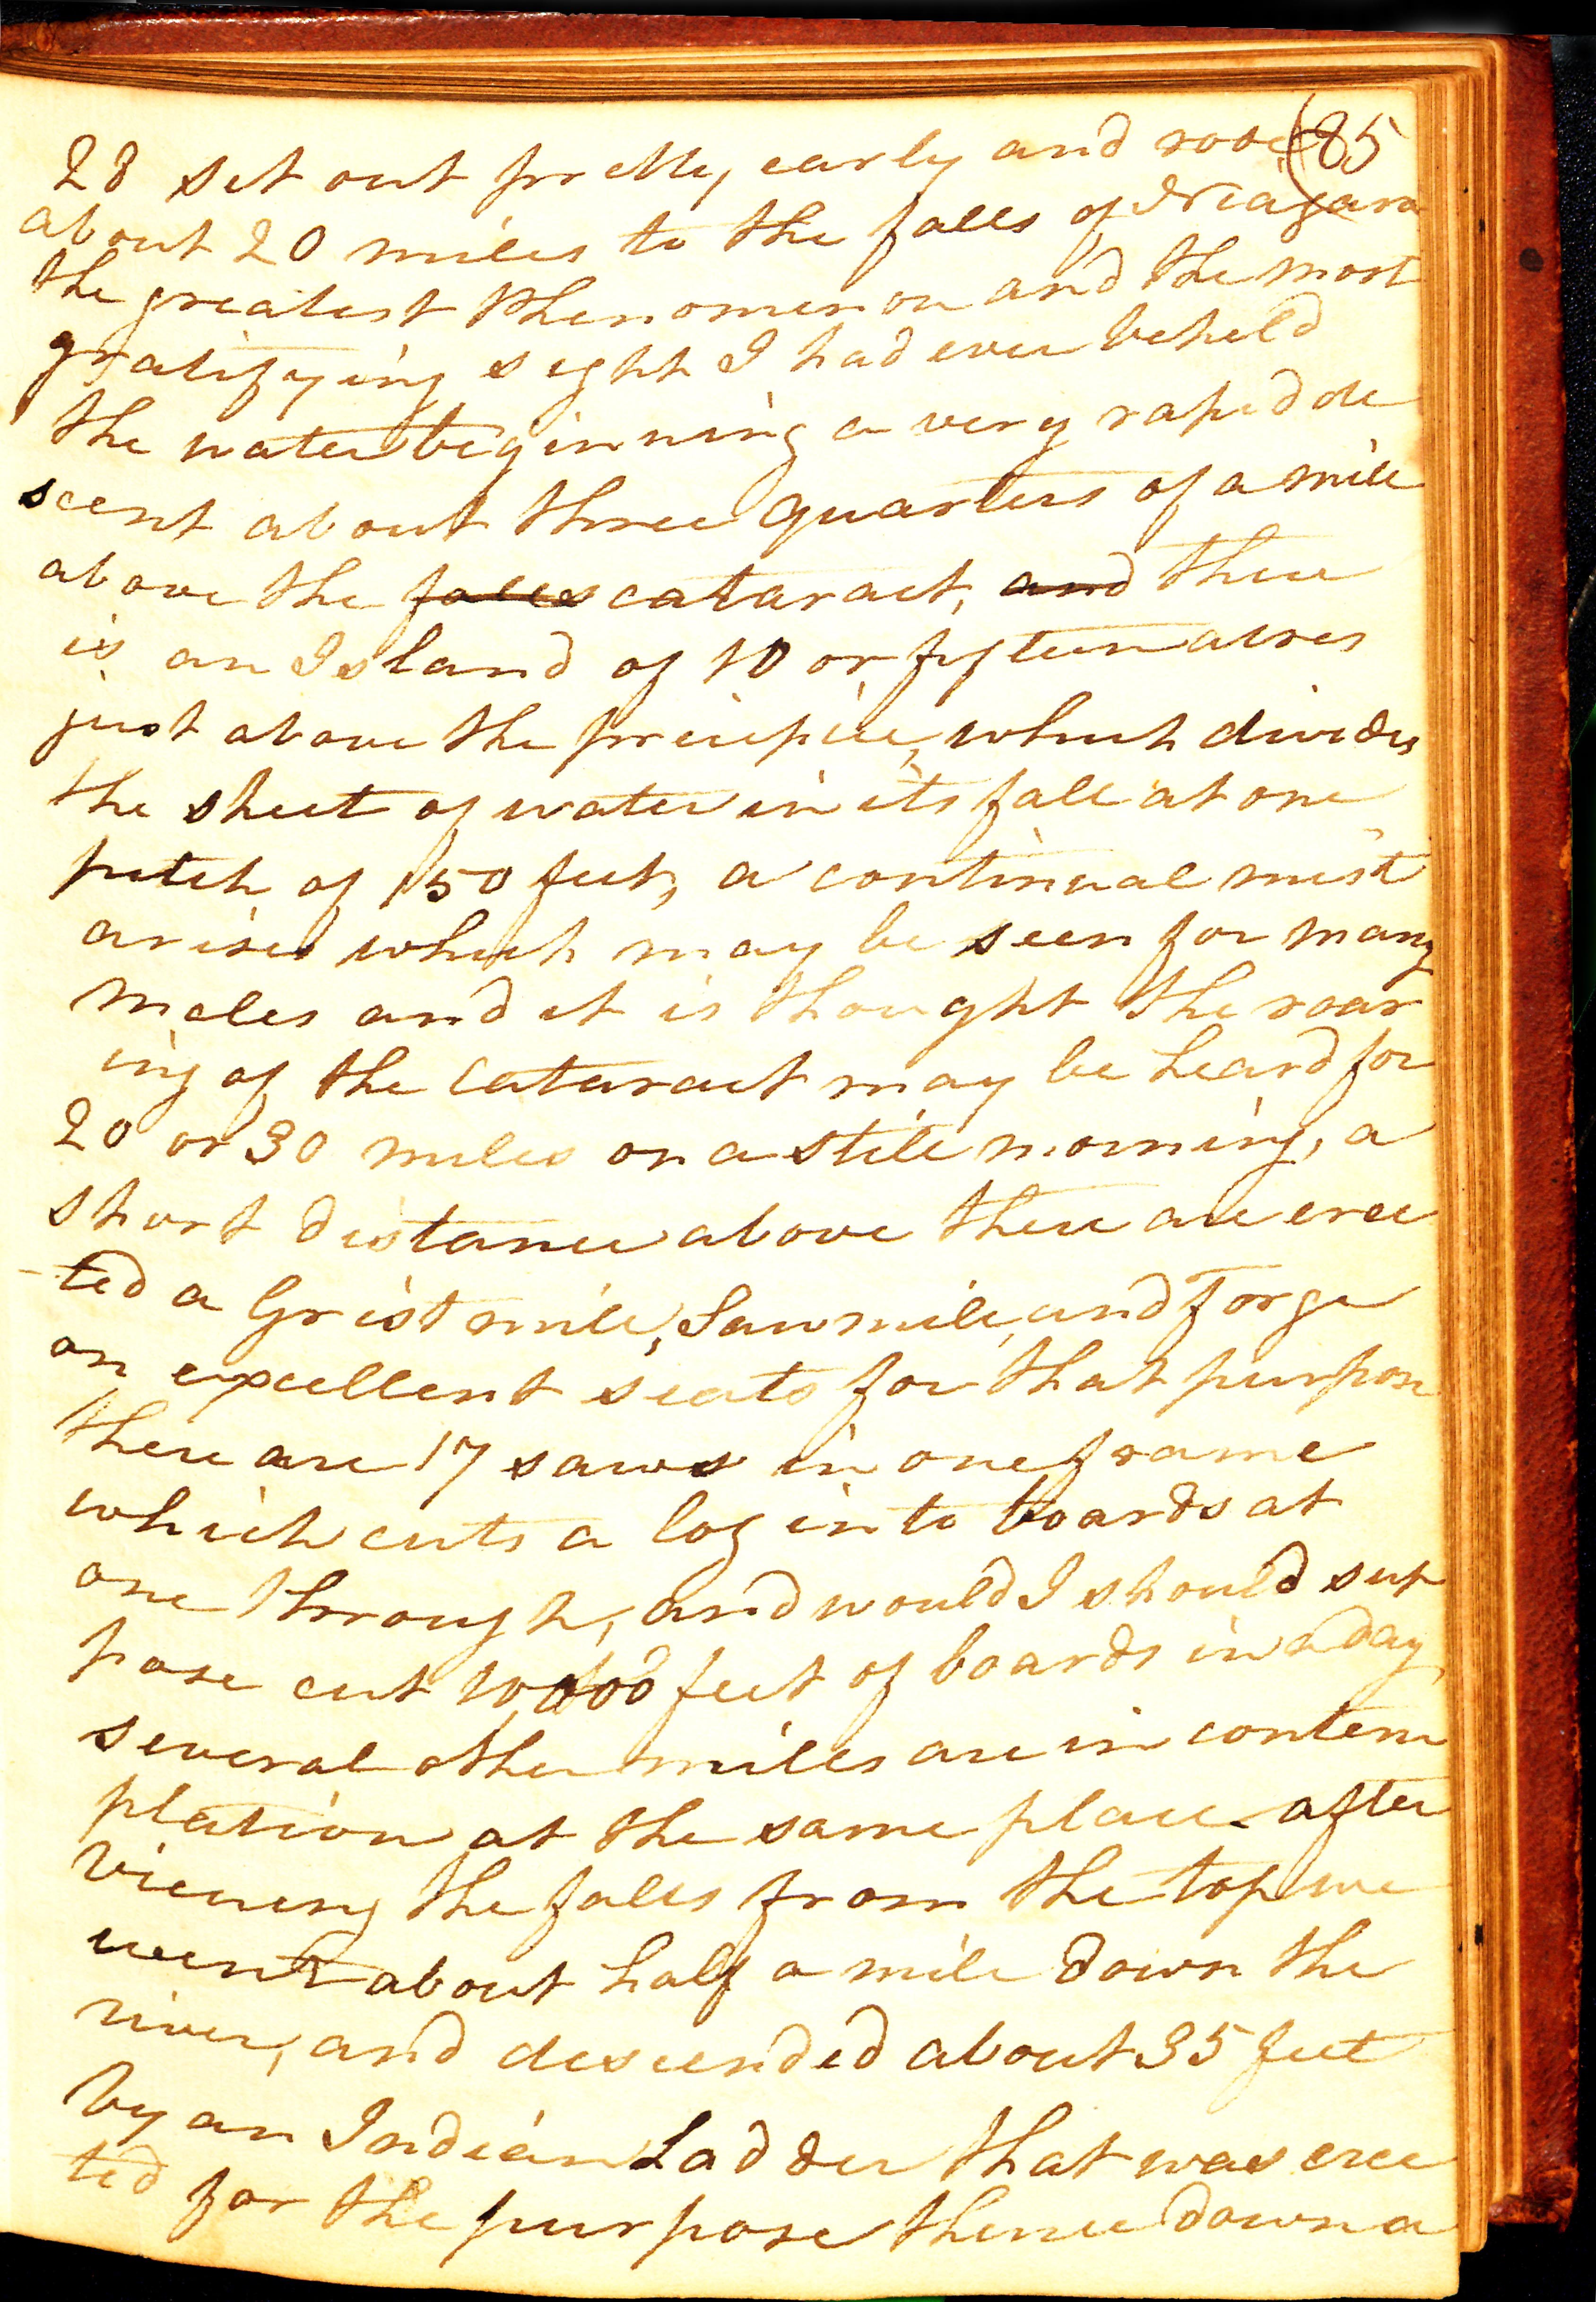 (85
28 set out pretty early and rode
about 20 miles to the falls of Niagara
the greatest Phenomenon and the most
gratifying sight I had ever beheld
the water beginning a very rapid de
scent about three quarters of a mile
above the falls cataract, and there
is an Island of 10 or fifteen acres
just above the precipice, which divides
the sheet of water in its fall at one
pitch of 150 feet, a continual mist
arises which may be seen for many
miles and it is thought the roar
ing of the Cataract may be heard for
20 or 30 miles on a still morning, a
short distance above there are erec
-ted a Grist mill, Sawmill, and Forge
an excellent seats for that purpose
there are 17 saws in one frame
which cuts a log into boards at
one through, and would I should sup
pose cut 10,000 feet of boards in a day
several other mills are in contem
plation at the same place. after
viewing the falls from the top we
went about half a mile down the
river, and descended about 35 feet
by an Indian Ladder that was erec
ted for the purpose thence down a